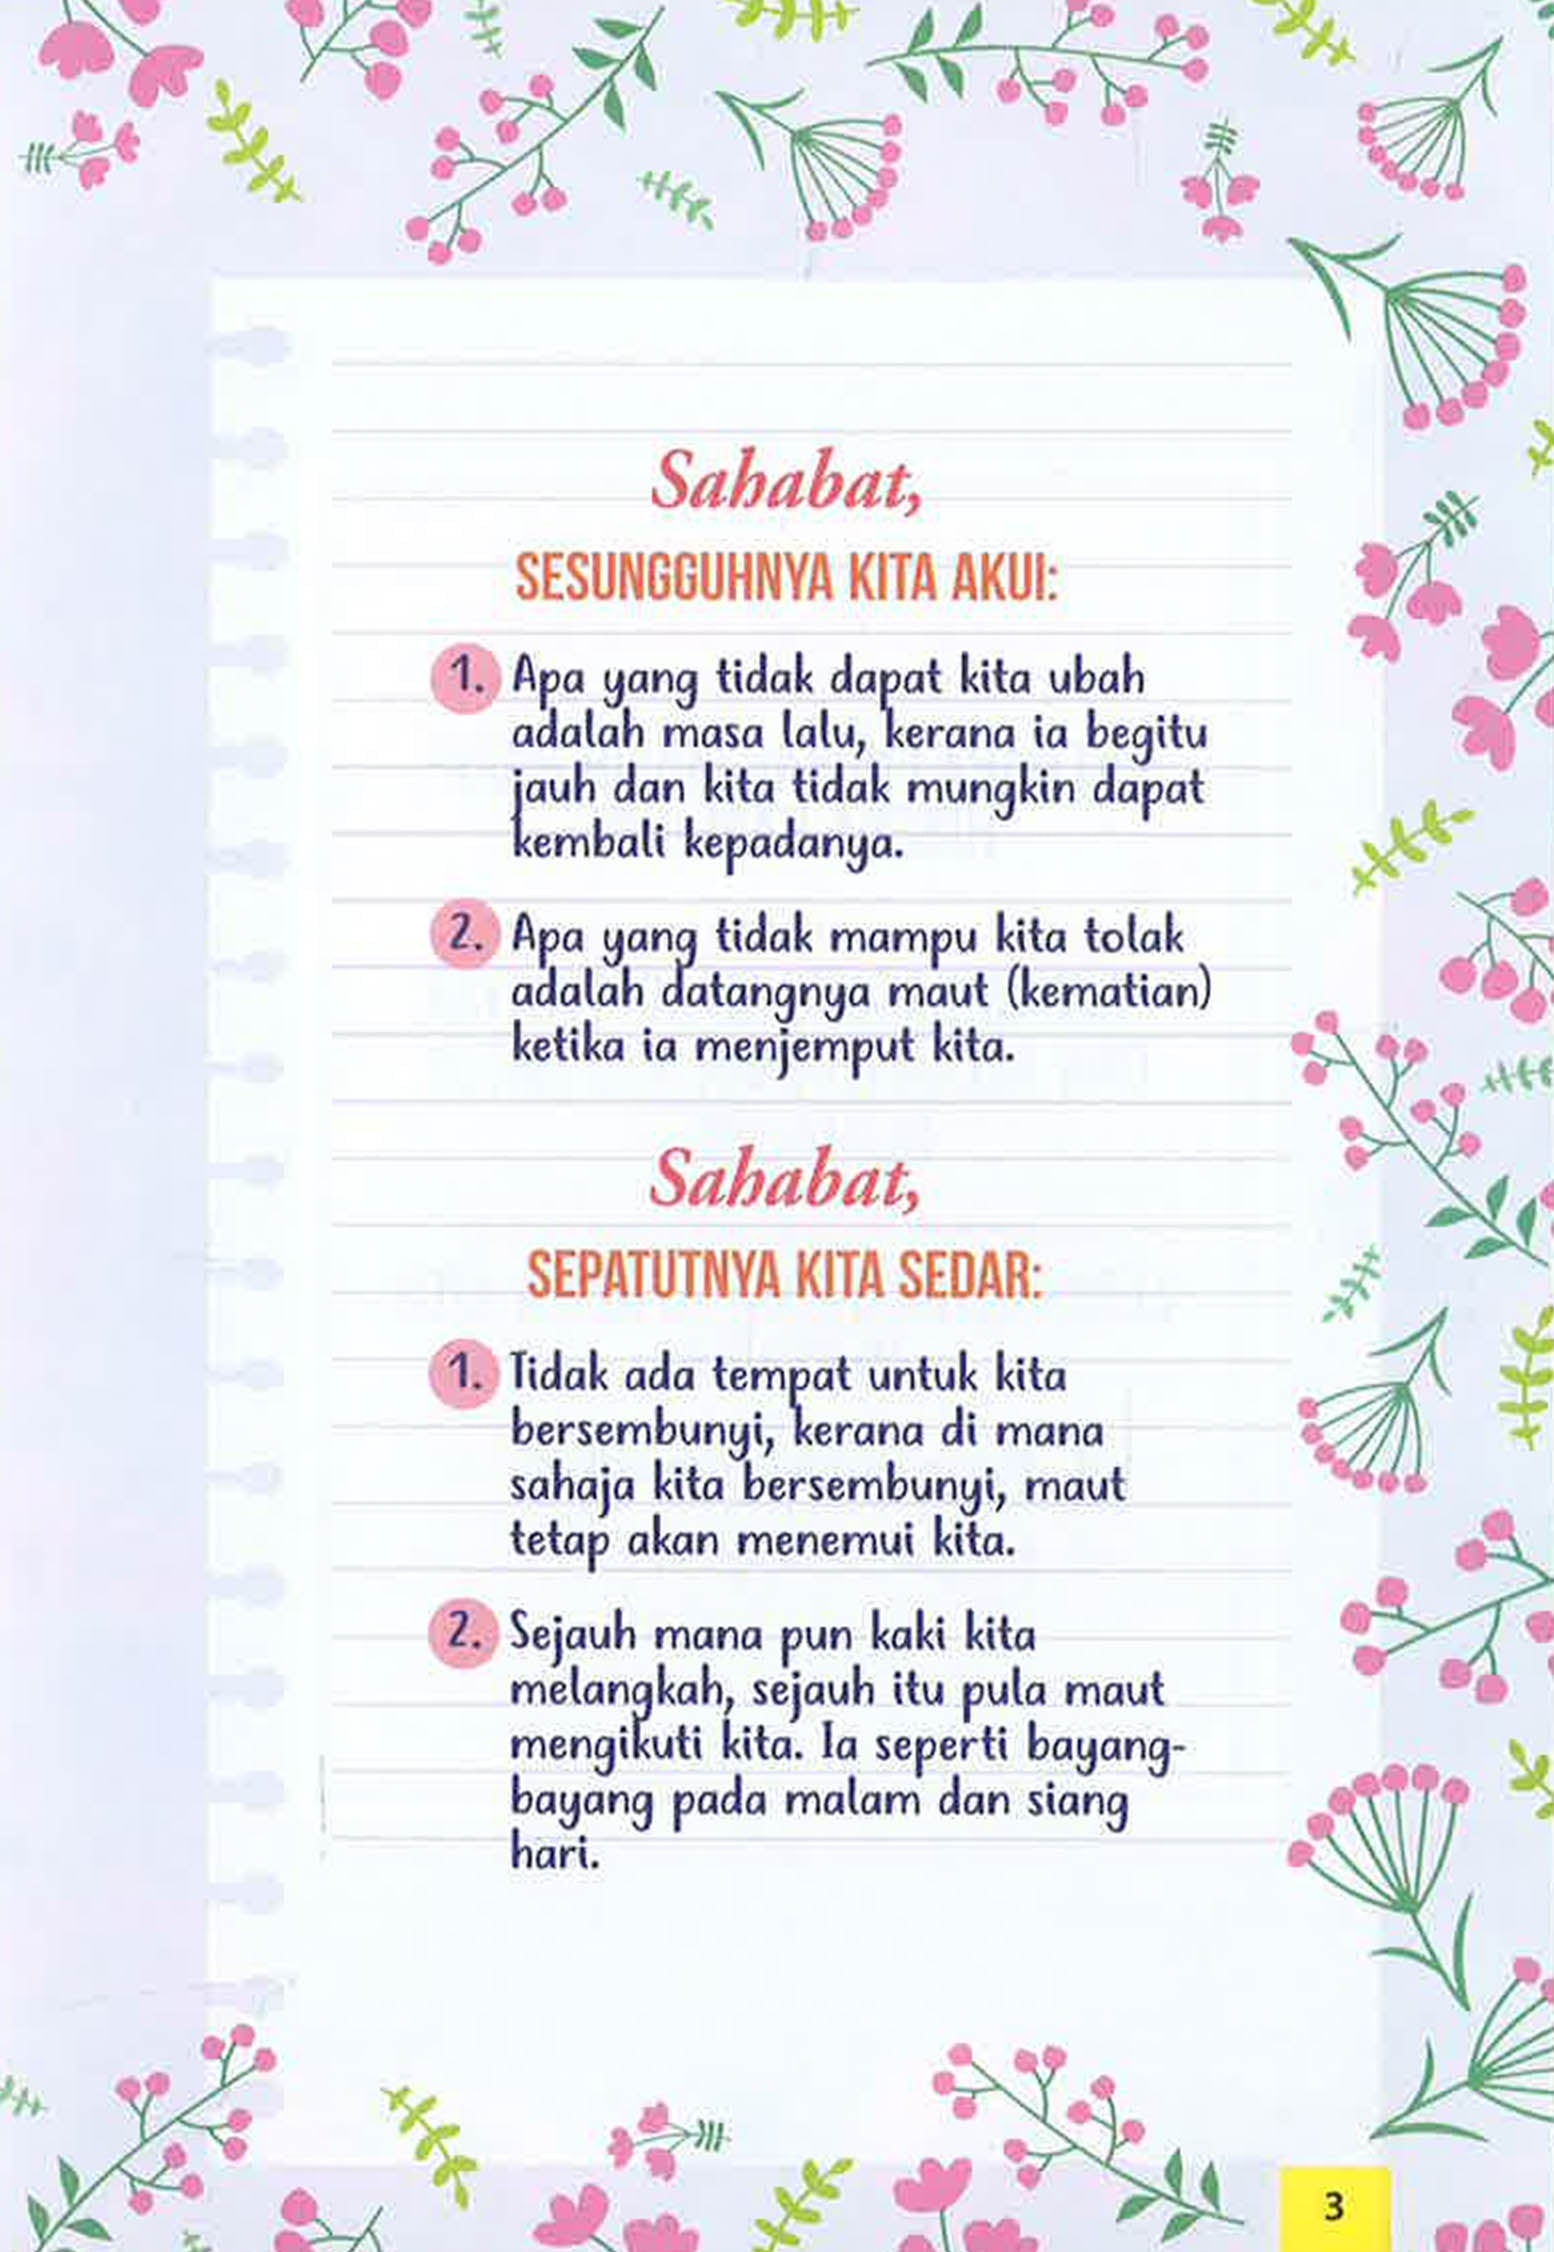 Sahabat,
SESUNGGUHNYA KITA AKUI:
1. Apa yang tidak dapat kita ubah
adalah masa lalu, kerana ia begitu
jauh dan kita tidak mungkin dapat
kembali kepadanya.
2. Apa yang tidak mampu kita tolak
adalah datangnya maut (kematian)
ketika ia menjemput kita.
Sahabat,
SEPATUTNYA KITA SEDAR:
1. Tidak ada tempat untuk kita
bersembunyi, kerana di mana
sahaja kita bersembunyi, maut
tetap akan menemui kita.
2. Sejauh mana pun kaki kita
melangkah, sejauh itu pula maut
mengikuti kita. Ia seperti bayang-
bayang pada malam dan siang
hari.
3